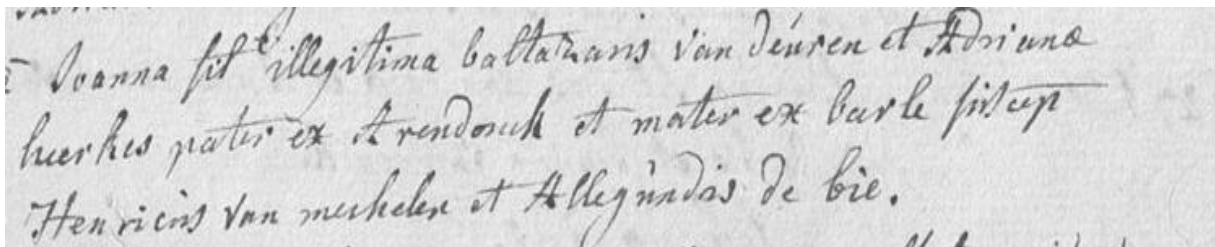 Joanna fil illegitima baltazaris van deuren et Adrianæ
heerkes pater ex Arendonck et mater ex barle suscep
Henricus van mechelen et Allegundis de bie.